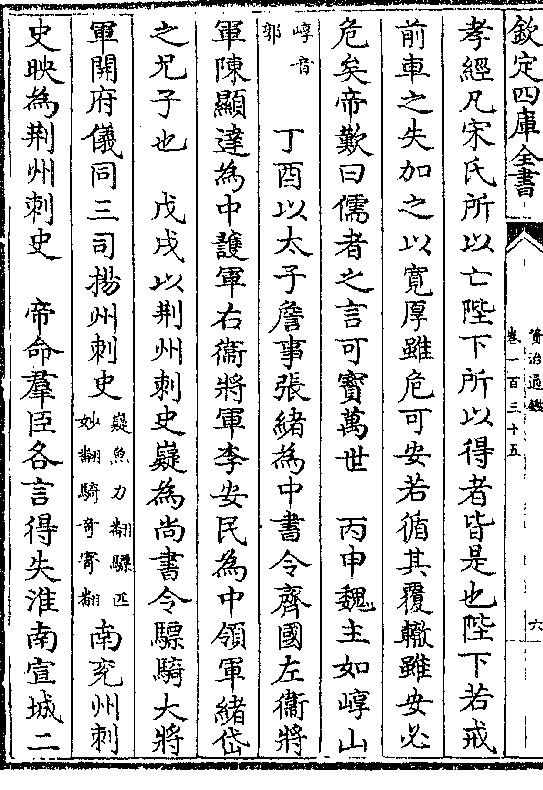 欽定四庫全書
資治通鑑
卷一百三十五
六
孝經凡宋氏所以亡陛下所以得者皆是也陛下若戒
前車之失加之以寛厚雖危可安若循其覆轍雖安必
危矣帝歎曰儒者之言可寳萬世　丙申魏主如崞山
崞音郭　丁酉以太子詹事張緒為中書令齊國左衞將
軍陳顯達為中護軍右衞將軍李安民為中領軍緒岱
之兄子也　戊戌以荆州刺史嶷為尚書令驃騎大將
軍開府儀同三司揚州刺史嶷魚力翻驃匹妙翻騎奇寄翻南兖州刺
史映為荆州刺史　帝命羣臣各言得失淮南宣城二